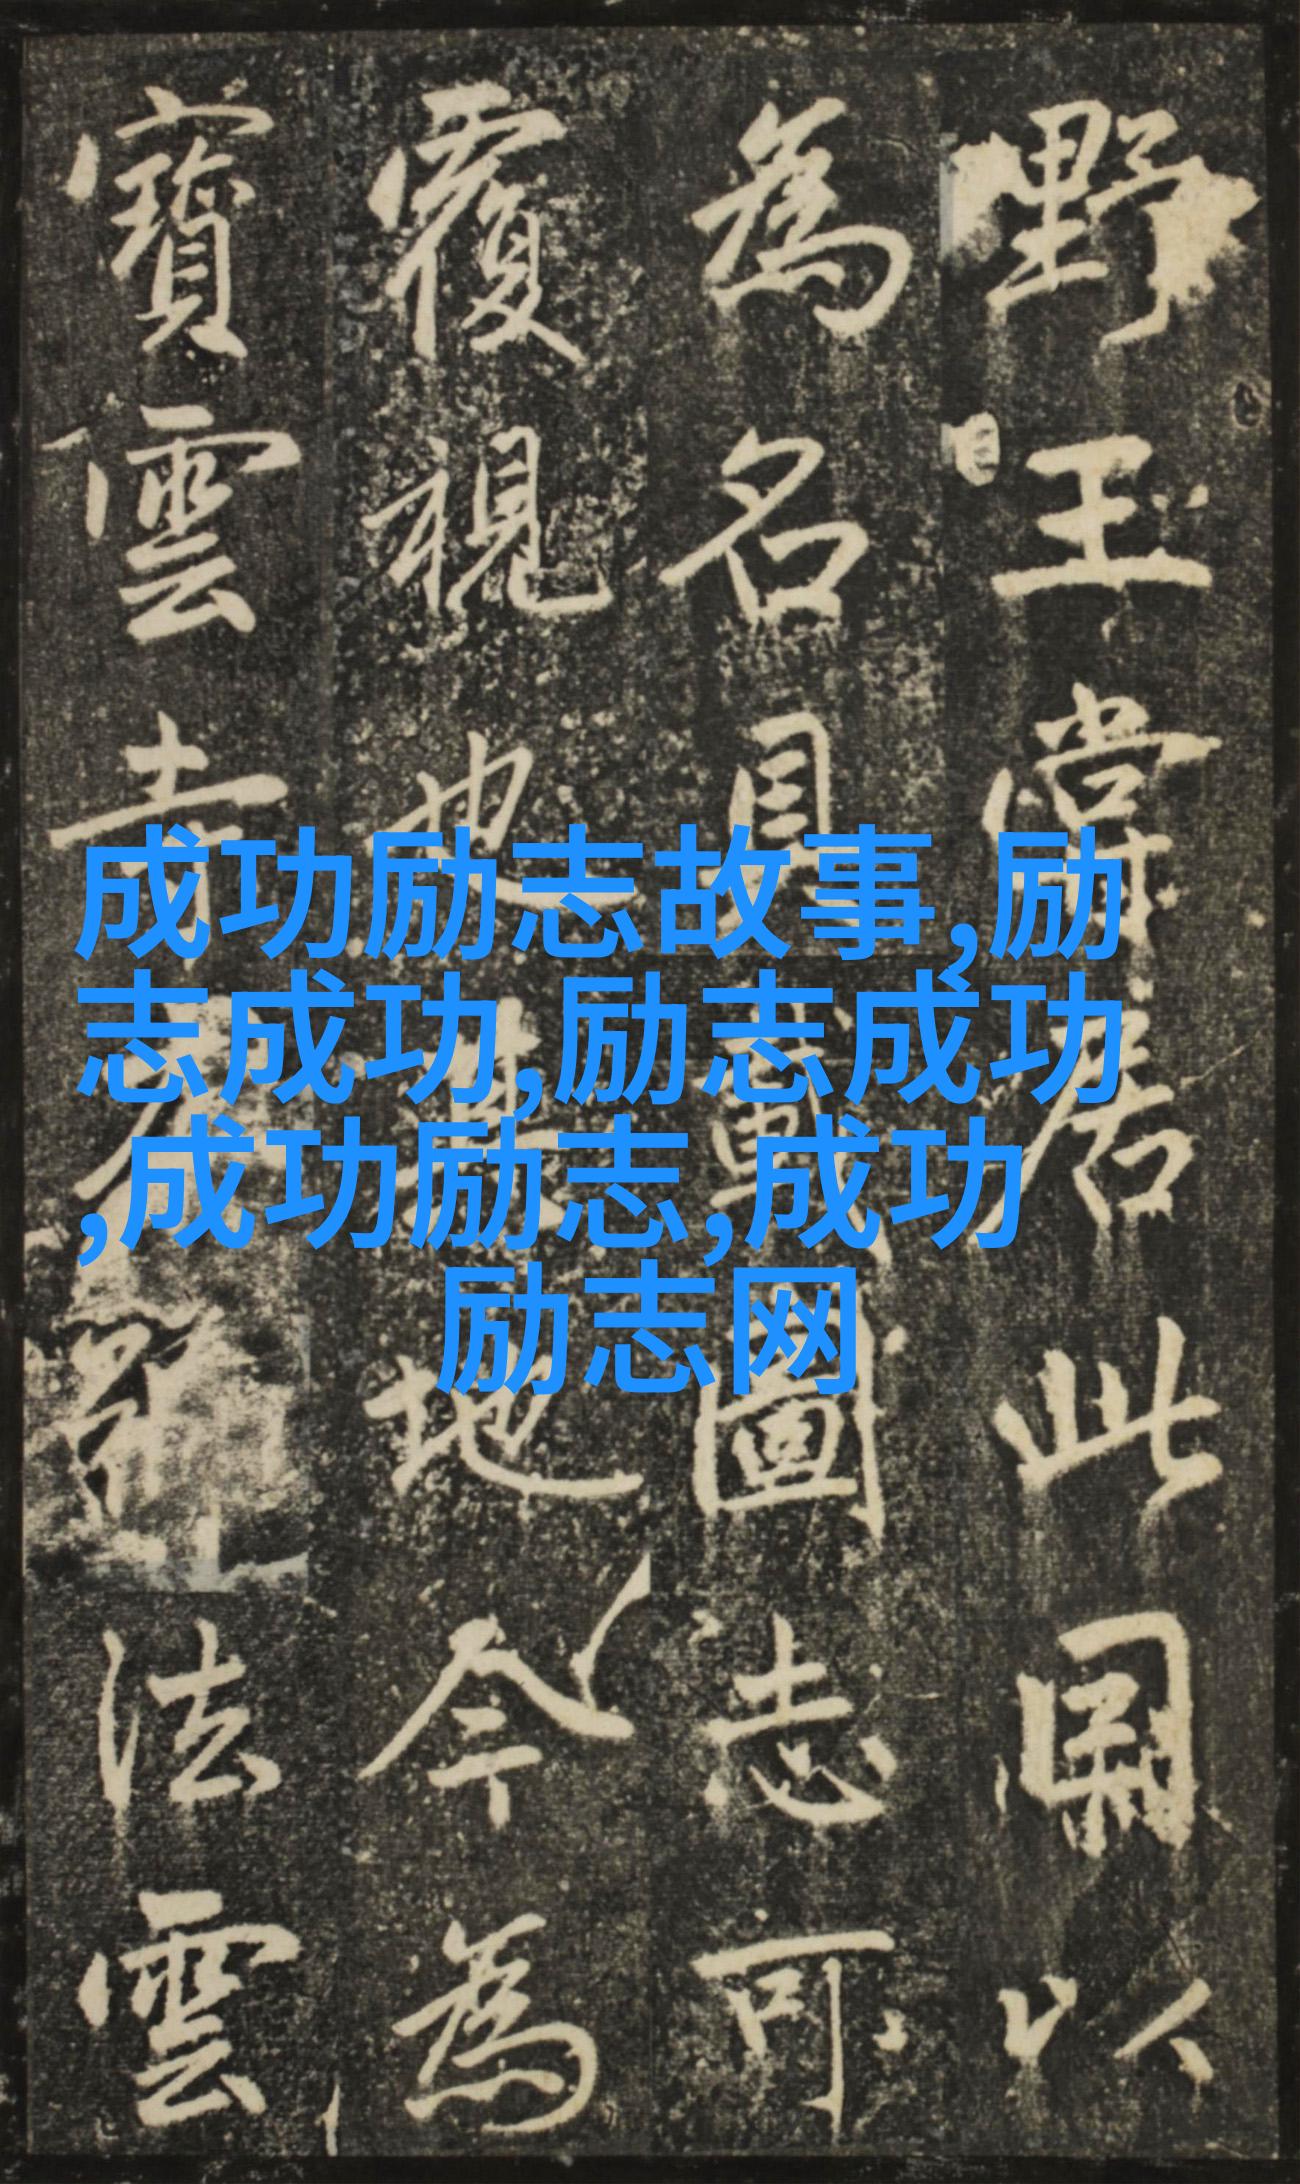 野王嘗居此以
為名具載圖志可
覆視也其地今為
寶雲寺法雲
成功励志故事,励
志成功,励志成功
,成功励志,成功
励志网